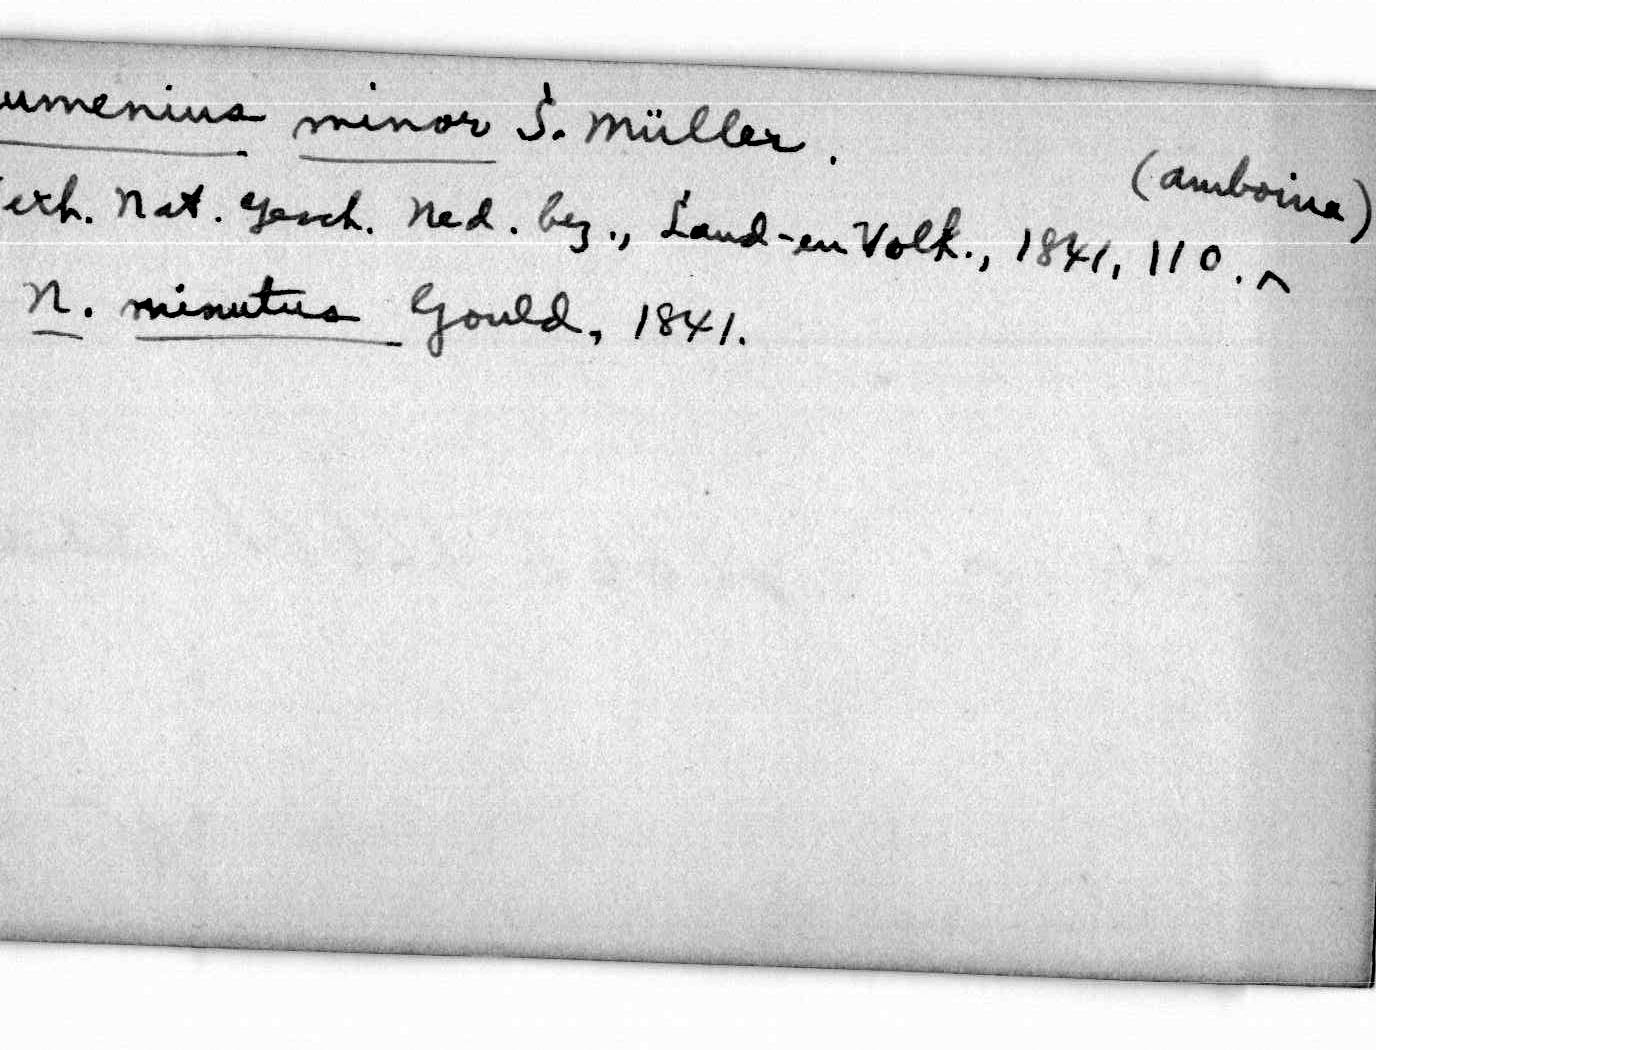 umenius minor S. Müller.
(Amboina)
erh. Nat. Gesch. Ned. bez., Land-en Volk., 1841, 110. ^
N. minutus Gould, 1841.